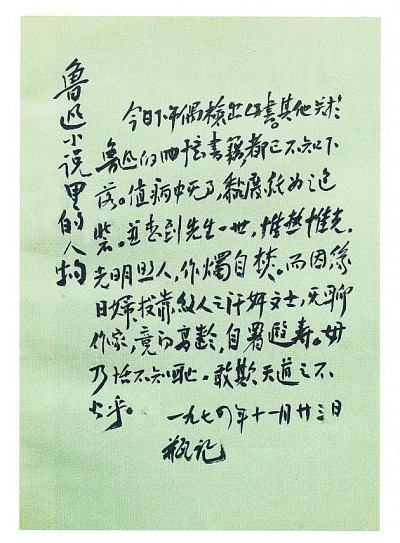 鲁迅小说里的人物
今日下午偶检出此书。其他关于
鲁迅的回忆书籍都已不知下
落。值病中无事，黏废纸为之包
装。并想到先生一世，惟热惟光，
光明照人，作烛自焚。而因缘
日妇，投靠敌人之汉奸文士，无聊
作家，竟得高龄，自署遐寿。毋
乃恬不知耻，敢欺天道之不
公乎。 一九七四年十一月廿三日
瓶记